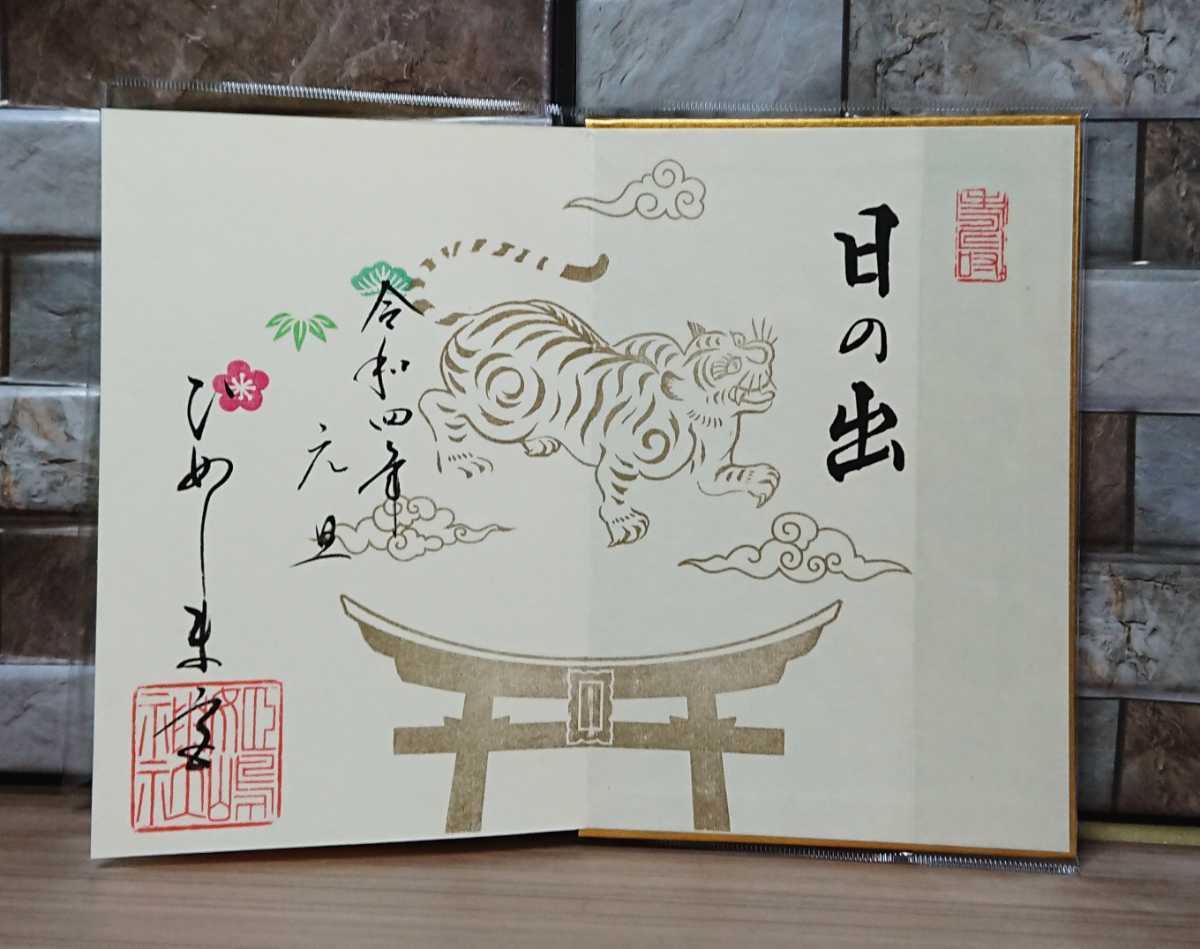 日の出
令和四年
元旦
ひめしま宮
姫嶋
神社